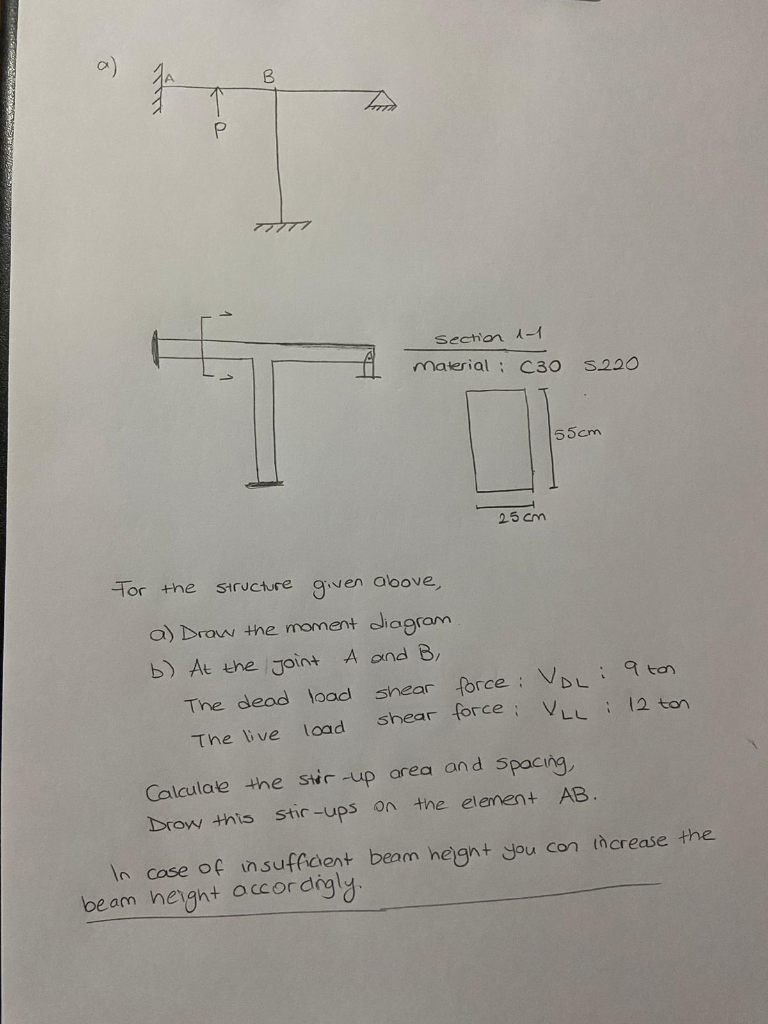 a)
A
B
P
section 1-1
material : C30 S220
55cm
25 cm
For the structure given above,
a) Draw the moment diagram.
b) At the joint A and B,
The dead load shear force : VDL : 9 ton
The live load shear force : VLL : 12 ton
Calculate the stir-up area and spacing,
Draw this stir-ups on the element AB.
In case of insufficient beam height you can increase the
beam height accordingly.